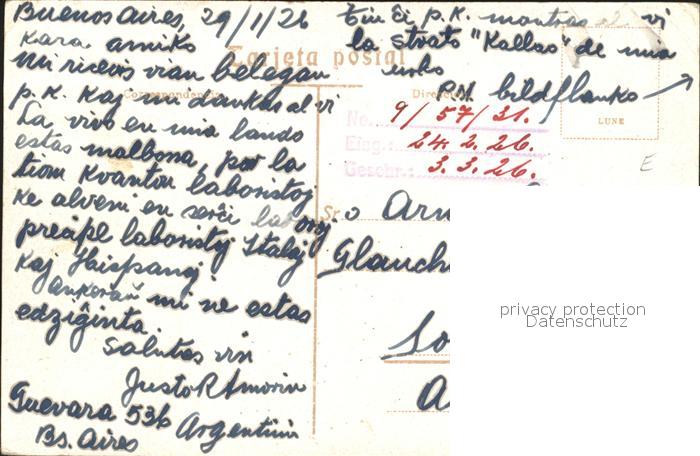 Buenos Aires, 29/1/26
Kara amiko
mi ricevis vian belegan
p.k. kaj mi dankas al vi
La vivo en mia lando
estas malbona, por la
tiom kvanton laboristoj
ke alveni en serĉi laboroj
precipe laboristoj Italoj
kaj Hispanoj
ankoraŭ mi ne estas
edziĝinta.
Salutas vin
Justo R Amorin
Guevara 536
Bs. Aires Argentinio
Tiu ĉi p.k. montras al vi
la strato "Kallao" de mia
urbo
bildflanko →
Tarjeta postal
Correspondencia
Direccion
No. 9/57/31.
Eing.: 24.2.26.
Geschr.: 3.3.26.
LUNE
E
Sr. o Arn
Glauch
So
A
privacy protection
Datenschutz